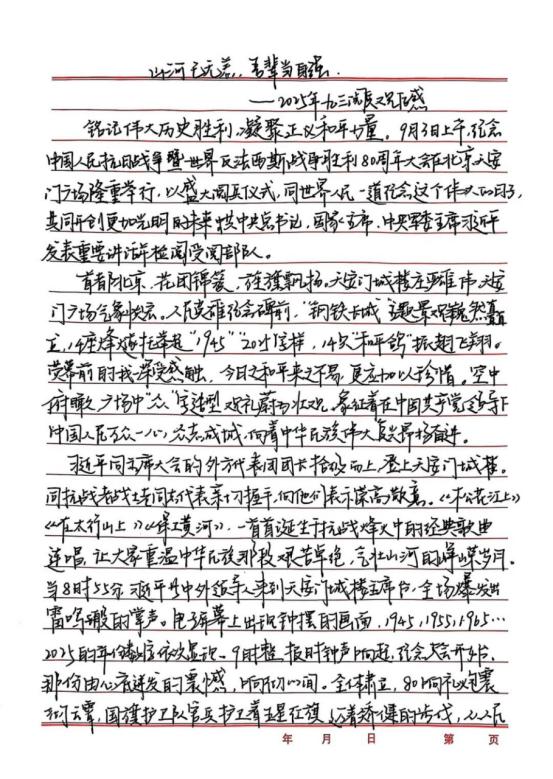 山河已无恙，吾辈当自强.
——2025年九三阅兵观后感
铭记伟大历史胜利，凝聚正义和平力量。9月3日上午，纪念
中国人民抗日战争暨世界反法西斯战争胜利80周年大会在北京天安
门广场隆重举行，以盛大阅兵仪式，同世界人民一道纪念这个伟大的日子，
共同开创更加光明的未来，中共中央总书记，国家主席，中央军委主席习近平
发表重要讲话并检阅受阅部队。
首都北京，花团锦簇，旌旗飘扬。天安门城楼庄严雄伟，天安
门广场气象恢宏。人民英雄纪念碑前，“钢铁长城”主题景观巍然矗
立，14座烽燧托举起“1945”“2025”字样，14只“和平鸽”振翅飞翔。
荧幕前的我深受感触，今日之和平来之不易，更应加以珍惜。空中
俯瞰，广场中“众”字造型观礼席蔚为壮观，象征着在中国共产党领导下
中国人民万众一心，众志成城，向着中华民族伟大复兴昂扬奋进。
习近平同出席大会的外方代表团团长拾级而上，登上天安门城楼。
同抗战老战士老同志代表亲切握手，向他们表示崇高敬意。《松花江上》
《在太行山上》《保卫黄河》，一首首诞生于抗战烽火中的经典歌曲
连唱，让大家重温中华民族那段艰苦卓绝，气壮山河的峥嵘岁月。
当8时55分习近平等中外领导人来到天安门城楼主席台，全场爆发出
雷鸣般的掌声。电子屏幕上出现钟摆的画面，1945，1955，1965…
2025的年份数字依次显现。9时整，报时钟声响起，纪念大会开始。
那份由心底迸发的震撼，响彻心间。全体肃立，80响礼炮震
彻云霄，国旗护卫队官兵护卫着五星红旗，迈着矫健的步伐，从人民
年 月 日 第 页